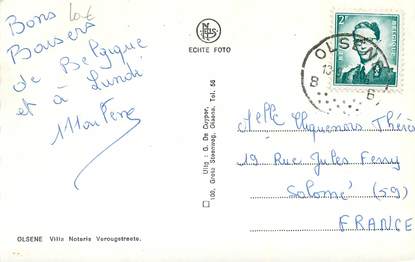 Bons
Baisers
de Belgique
et à Lundi
NELS
ECHTE FOTO
BELGIQUE
2F
OLSENE
13
8
6
Uitg : G. De Cuyper,
100, Grote Steenweg, Olsene, Tel. 56
Melle Miquenois Thérè
19 Rue Jules Ferry
Salomé (59)
FRANCE
OLSENE Villa Notaris Verougstraete.